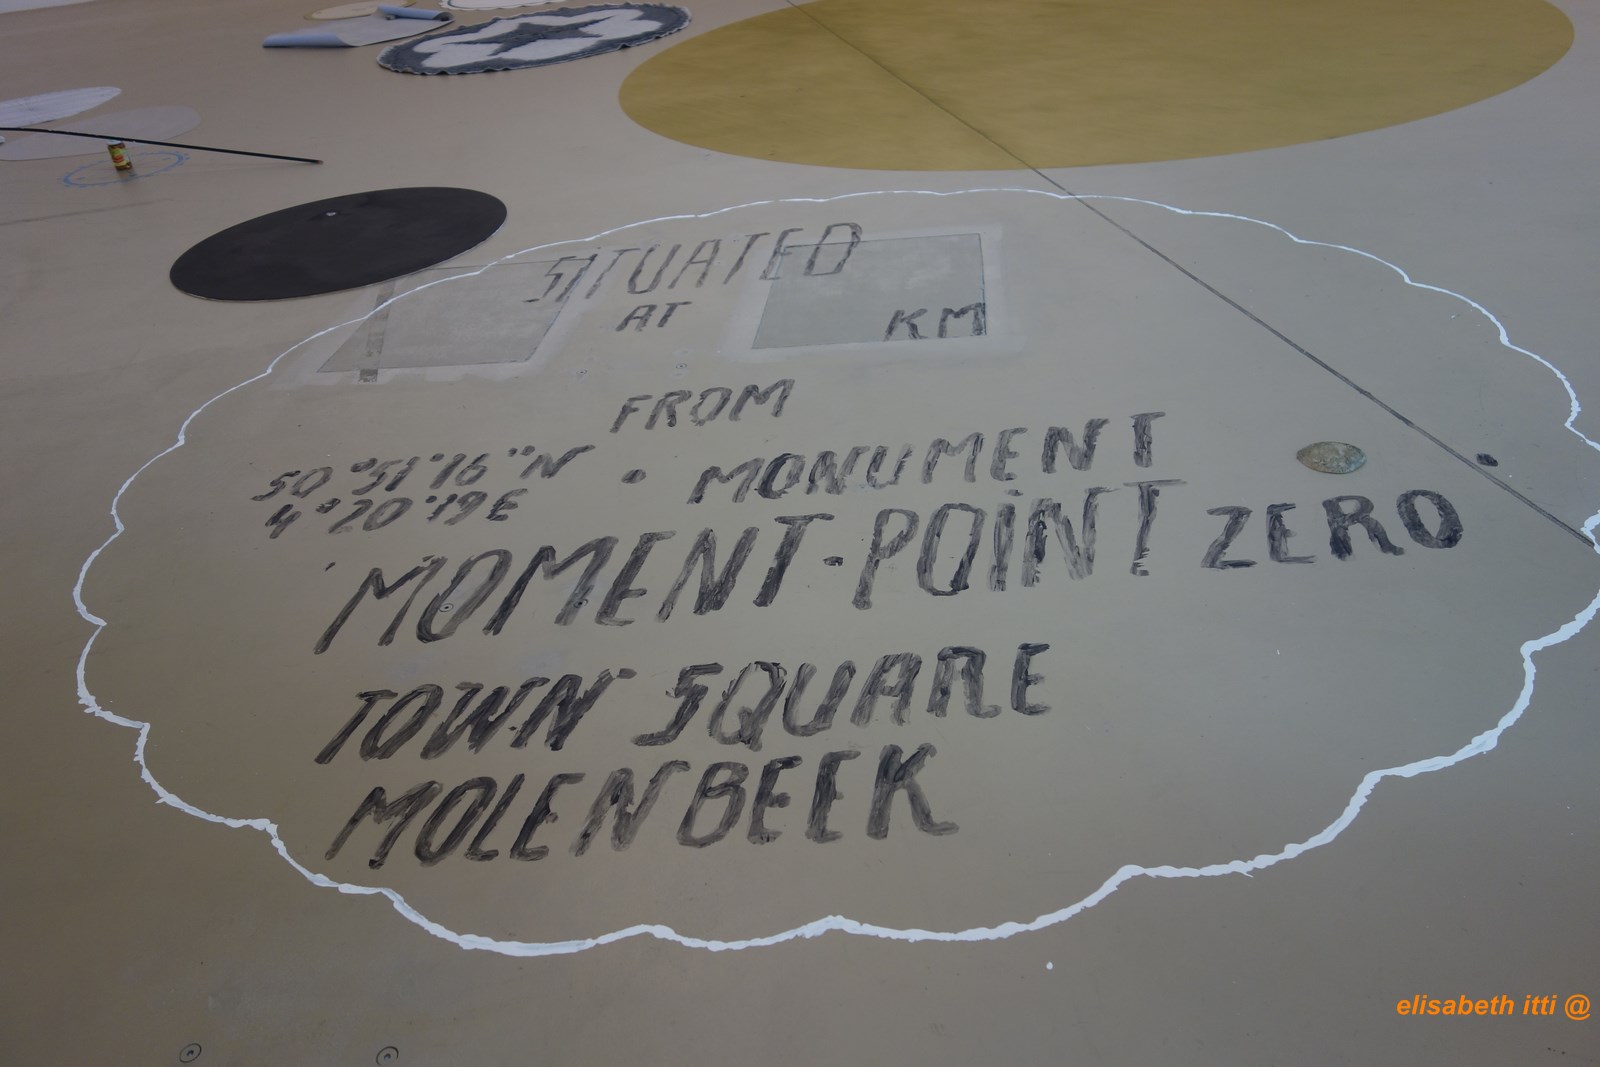 SITUATED
AT KM
FROM
50°51'16"N • MONUMENT
4°20'19E
MOMENT-POINT ZERO
TOWN SQUARE
MOLENBEEK
elisabeth itti @